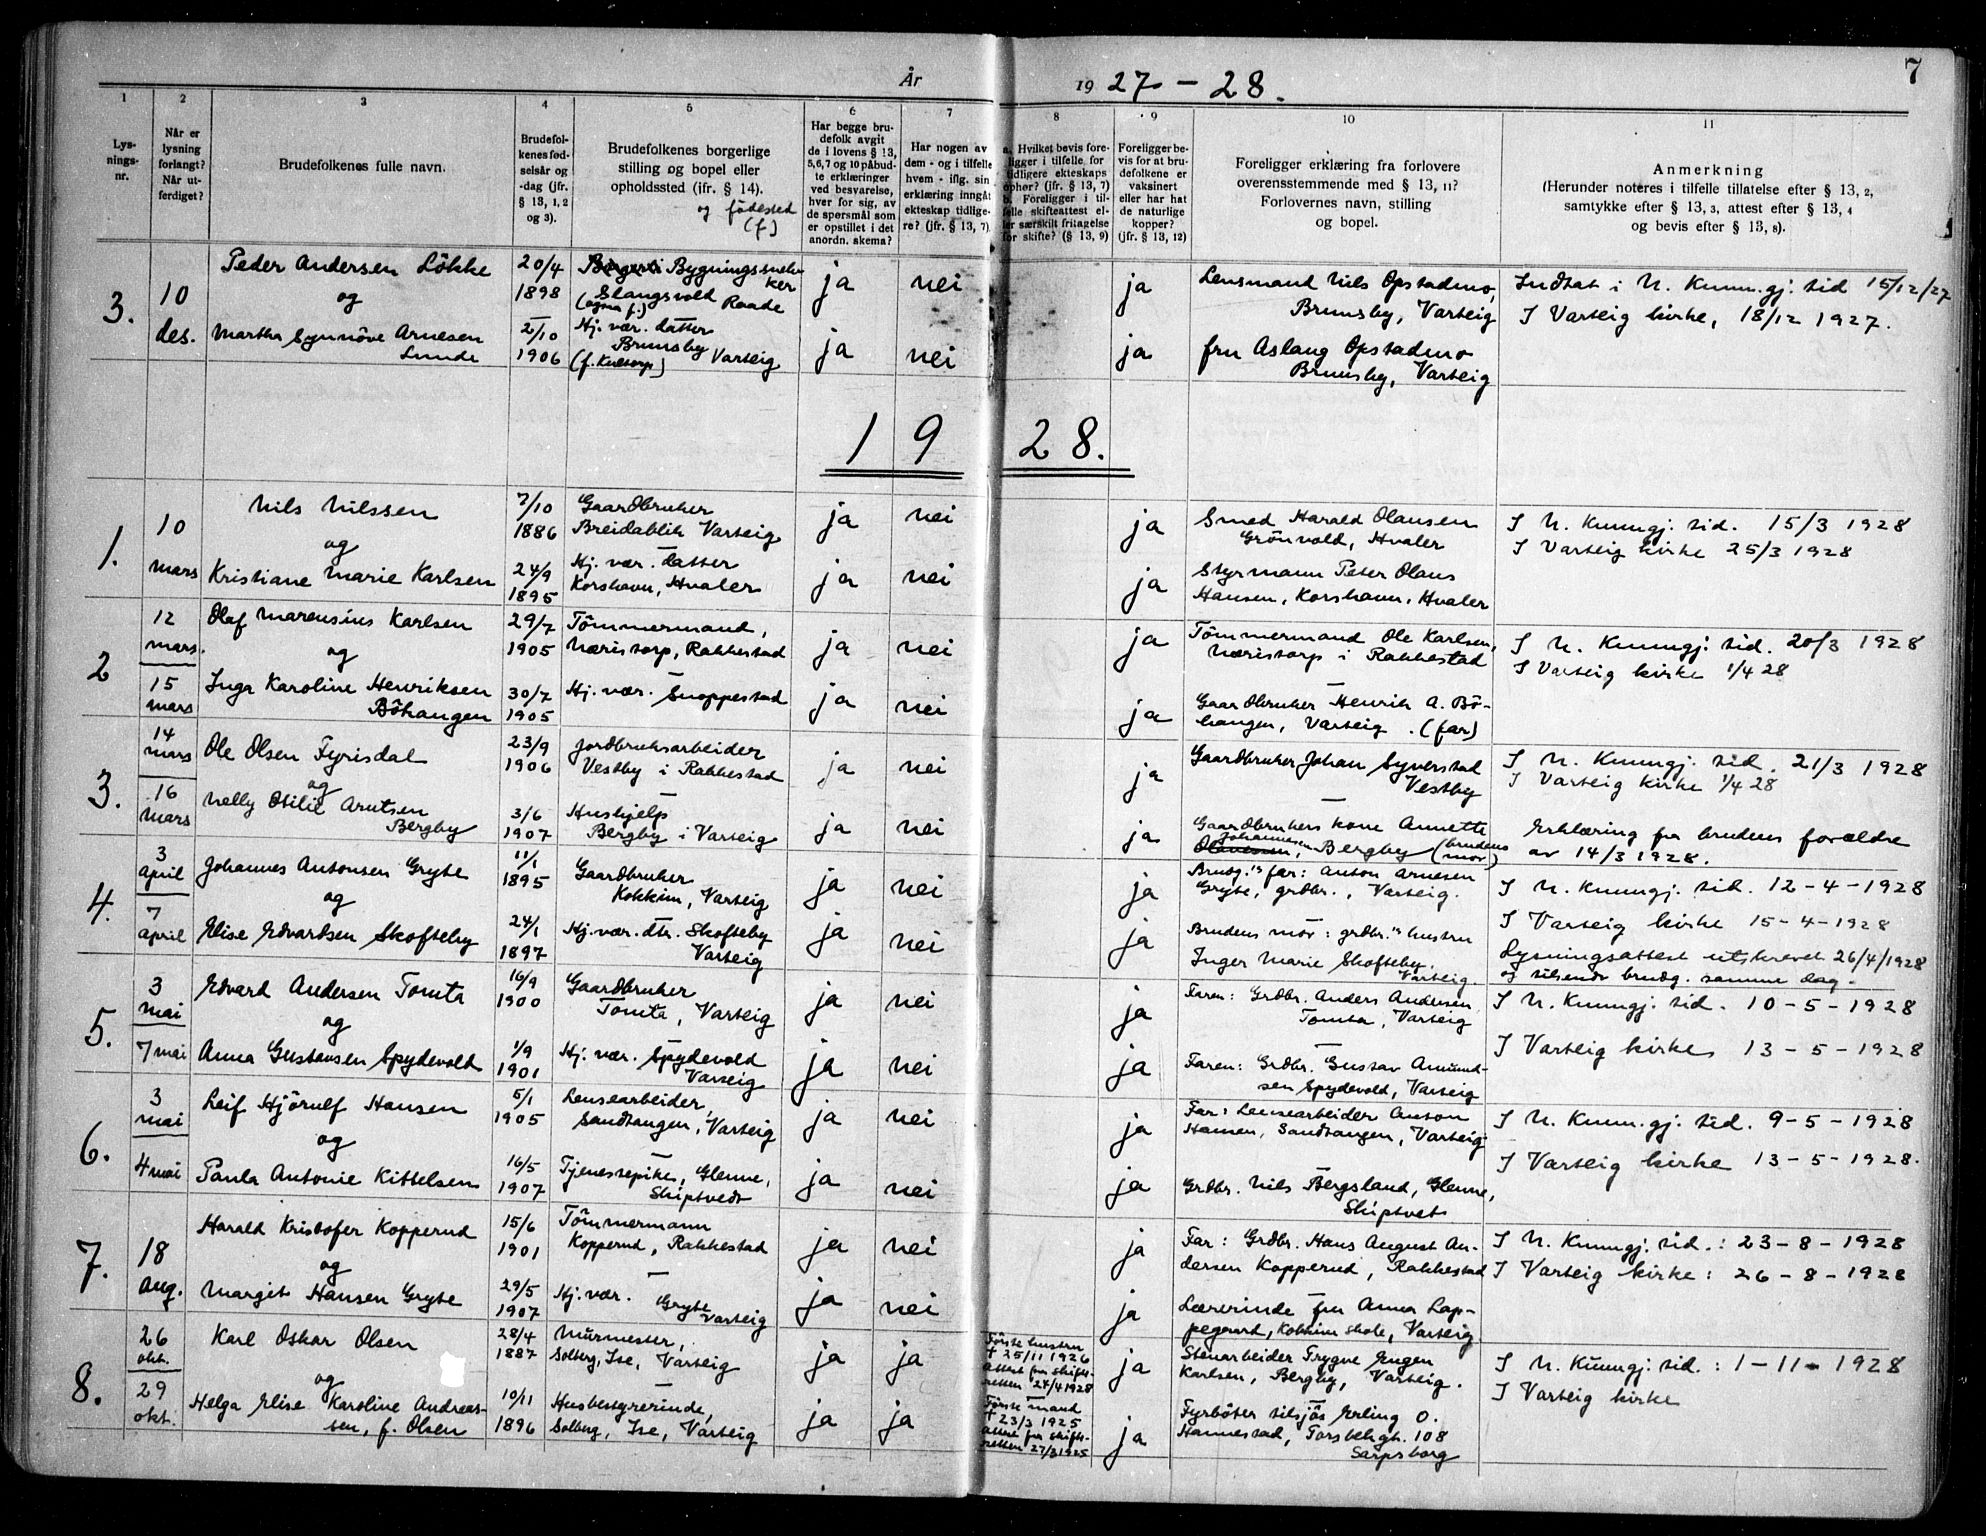 År 1927 – 28.
7
1
2
3
4
5
6
7
8
9
10
11
Lys-
nings-
nr.
Når er
lysning
forlangt?
Når ut-
ferdiget?
Brudefolkenes fulle navn.
Brudefol-
kenes fød-
selsår og
-dag (jfr.
§ 13, 1, 2
og 3).
Brudefolkenes borgerlige
stilling og bopel eller
opholdssted (jfr. § 14).
og födested
(f)
Har begge bru-
defolk avgit
de i lovens § 13,
5,6,7 og 10 påbud-
te erklæringer
ved besvarelse,
hver for sig, av
de spørsmål som
er opstillet i det
anordn. skema?
Har nogen av
dem - og i tilfelle
hvem - iflg. sin
erklæring inngått
ekteskap tidlige-
re? (jfr. § 13, 7)
a. Hvilket bevis fore-
ligger i tilfelle for
tidligere ekteskaps
ophør? (jfr. § 13, 7)
b. Foreligger i til-
felle skifteattest el-
ler særskilt fritagelse
for skifte? (§ 13, 9)
Foreligger be-
vis for at bru-
defolkene er
vaksinert
eller har hat
de naturlige
kopper?
(jfr. § 13, 12)
Foreligger erklæring fra forlovere
overensstemmende med § 13, 11?
Forlovernes navn, stilling
og bopel.
Anmerkning
(Herunder noteres i tilfelle tillatelse efter § 13, 2,
samtykke efter § 13, 3, attest efter § 13, 4
og bevis efter § 13, 8).
3.
10
des.
Peder Andersen Lökke
og
Martha Synnöve Arnesen
Lunde
20/4
1898
2/10
1906
Bygningssnek
ker
Slangsvold Raade
(ogsaa f.)
Hj. vær. datter
Brunsby
(f. ) Varteig
ja
ja
nei
nei
ja
ja
Lensmand Nils Opstadmo,
Brunsby, Varteig
fru Aslaug Opstadmo
Brunsby, Varteig
Indtat i N. Kunn.gj. tid 15/12/27
I Varteig kirke, 18/12 1927.
1928.
1.
10
mars
Nils Nilssen
og
Kristiane Marie Karlsen
7/10
1886
24/9
1895
Gaardbruker
Breidablik Varteig
Hj. vær. datter
Korshavn, Hvaler
ja
ja
nei
nei
ja
ja
Smed Harald Olausen
Grönvold, Hvaler
Styrmann Peter Olaus
Hansen, Korshavn, Hvaler
I N. Kunngj. tid. 15/3 1928
I Varteig kirke 25/3 1928
2
12
mars.
15
mars
Olaf Marensius Karlsen
og
Inga Karoline Henriksen
Böhaugen
29/7
1905
30/7
1905
Tömmermand,
Næristorp, Rakkestad
Hj. vær. Snoppestad
ja
ja
nei
nei
ja
ja
Tömmermand Ole Karlsen,
Næristorp i Rakkestad
Gaardbruker Henrik A. Bö-
haugen, Varteig. (far)
I N. Kunngj. tid. 20/3 1928
I Varteig kirke 1/4 28
3.
14
mars
16
mars
Ole Olsen Fyrisdal
og
Nelly Otilie Arntsen
Bergby
23/9
1906
3/6
1907
Jordbruksarbeider
Vestby i Rakkestad
Hushjelp
Bergby i Varteig
ja
ja
nei
nei
ja
ja
Gaardbruker Johan Syverstad
Vestby
Gaardbrukers kone Annette
Johannesen
Bergby (brudens
mor)
I N. Kunngj. tid. 21/3 1928
I Varteig kirke 1/4 28
Erklæring fra brudens forældre
av 14/3 1928.
4.
3
april
7
april
Johannes Antonsen Gryte
og
Elise Edvardsen Skofteby
11/1
1895
24/1
1897
Gaardbruker
Kokkim, Varteig
Hj. vær. dtr. Skofteby
Varteig
ja
ja
nei
nei
ja
ja
Brudg.'s far: Anton Arnesen
Gryte, grdbr., Varteig.
Brudens mor: grdbr.'s hustru
Inger Marie Skofteby.
Varteig.
I N. Kunngj. tid. 12-4-1928
I Varteig kirke 15-4-1928
Lysningsattest utskrevet 26/4/1928
og tilsendt brudg. samme dag.
5.
3
mai
7 mai
Edvard Andersen Tomta
og
Anna Gustavsen Spydevold
16/9
1900
1/9
1901
Gaardbruker
Tomta, Varteig
Hj. vær. Spydevold
Varteig
ja
ja
nei
nei
ja
ja
Faren: Grdbr. Anders Andersen
Tomta, Varteig
Faren: Grdbr. Gustav Amund-
sen Spydevold, Varteig
I N. Kunngj. tid. 10-5-1928
I Varteig kirke 13-5-1928
6.
3
mai
4 mai
Leif Hjörulf Hansen
og
Paula Antonie Kittelsen
5/1
1905
16/5
1907
Lensearbeider,
Sandtangen, Varteig
Tjenestepike, Glenne,
Skiptvedt
ja
ja
nei
nei
ja
ja
Far: Lensearbeider Anton
Hansen, Sandtangen, Varteig
Grdbr. Nils Bergsland, Glenne,
Skiptvet
I N. Kunn.gj. tid. 9-5-1928
I Varteig kirke 13-5-1928.
7.
18
aug.
Harald Kristofer Kopperud
og
Margit Hansen Gryte
15/6
1901
29/5
1907
Tömmermann
Kopperud, Rakkestad
Hj. vær.
Gryte
Varteig
ja
ja
nei
nei
ja
ja
Far: Grdbr. Hans August An-
dersen Kopperud, Rakkestad
Lærerinde fru Anna Lap-
pegaard, Kokkim skole, Varteig
I N. Kunngj. tid.: 23-8-1928
I Varteig kirke: 26-8-1928
8.
26
okt.
29
okt.
Karl Oskar Olsen
og
Helga Elise Karoline Andreas-
sen, f. Olsen
28/4
1887
10/11
1896
Murmester,
Solberg, Ise, Varteig
Husbestyrerinde,
Solberg, Ise, Varteig
ja
ja
ja
ja
Förste hustru
† 25/11 1926
attest fra skifte-
retten 24/4 1928
Förste mand
† 23/3 1925
attest fra skifte-
retten 27/3 1925
ja
ja
Stenarbeider Trygve Engen
Karlsen, Bergby, Varteig.
Fyrböter tilsjös Erling O.
Hannestad, Torsbekkgt. 108
Sarpsborg
I N. Kunngj. tid.: 1-11-1928
I Varteig kirke